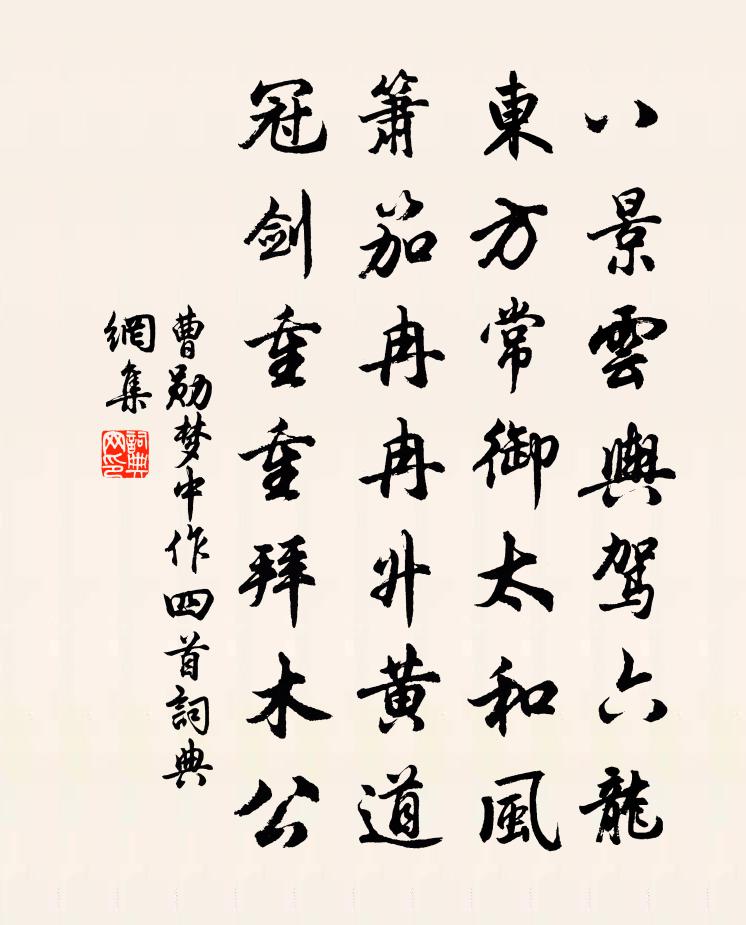 八景雲輿駕六龍
東方常御太和風
簫笳冉冉升黃道
冠剑重重拜木公
曹勛梦中作四首詞典
網集
詞典
网印